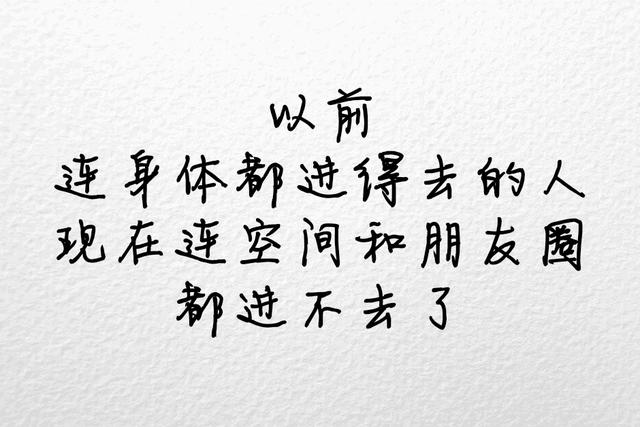 以前
连身体都进得去的人
现在连空间和朋友圈
都进不去了